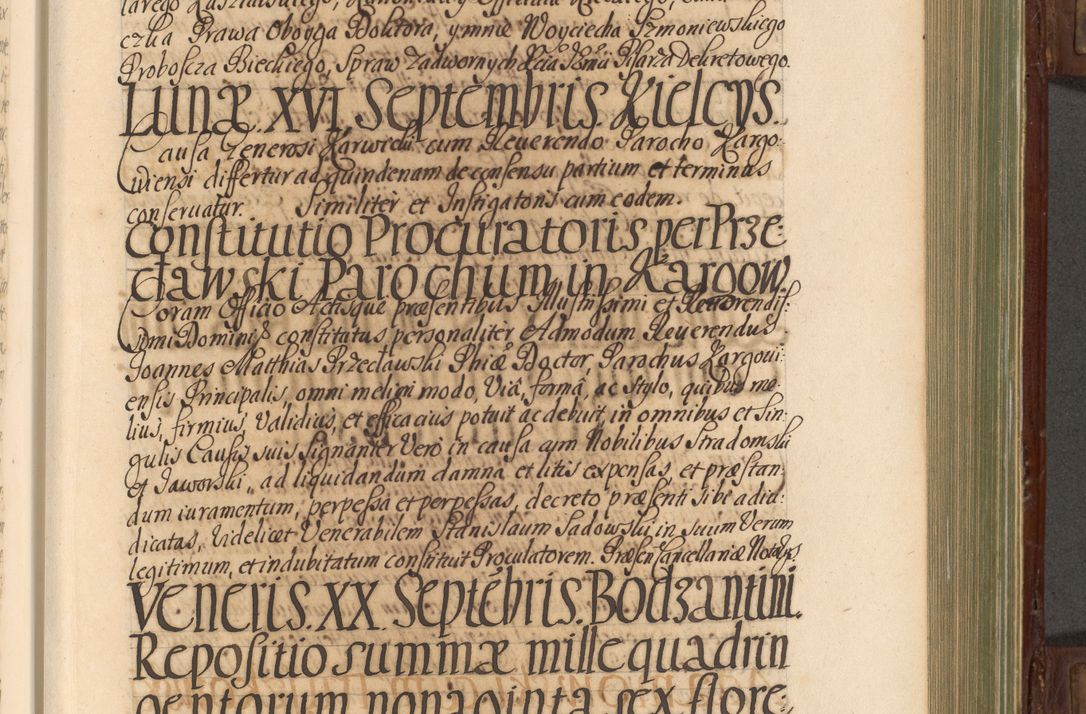 czka Prawa Oboyga Doktora, ymnie Woyciecha Szmoniewskiego
Proboscza Bieckiego, Spraw Zadwornych Pisarza Dekretowego.
Lunæ XVI Septembris Kielcys.
Causa Generosi Karwicki cum Reuerendo Parocho Kargo:
uiensi differtur ad quindenam de consensu partium et terminus
conseruatur. Similiter et Instigatoris cum eodem.
Constitutio Procuratoris per Prze:
cławski Parochum in Kargow.
Coram Officio Actisque præsentibus Illustrissimi et Reuerendis:
simi Domini constitutus personaliter Admodum Reuerendus
Joannes Matthias Przecławski Phiæ Doctor, Parochus Kargoui:
ensis Principalis, omni meliori modo, Viâ, formâ, ac stylo, quibus me:
lius, firmius, Validius, et efficacius potuit ac debuit, in omnibus et sin:
gulis Causis suis signanter Vero in causa cum Nobilibus Stradomski
et Jaworski, ad liquidandum damna et litis expensas, et præstan:
dum iuramentum, perpessa et perpessas, decreto præsenti sibi adiu:
dicatas, Videlicet Venerabilem Stanislaum Sadowski in suum Verum
legitimum, et indubitatum constituit Proculatorem. Præsen Cancellariæ Notarys
Veneris XX Septembris. Bodzantini.
Repositio summæ mille quadrin
gentorum nonaginta sex flore: